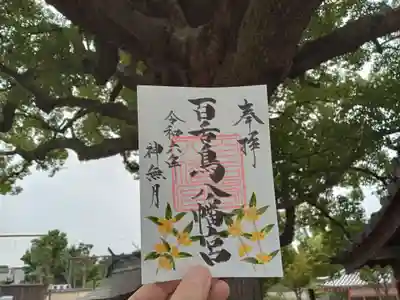 奉拝
百舌鳥八幡宮
令和六年
神無月